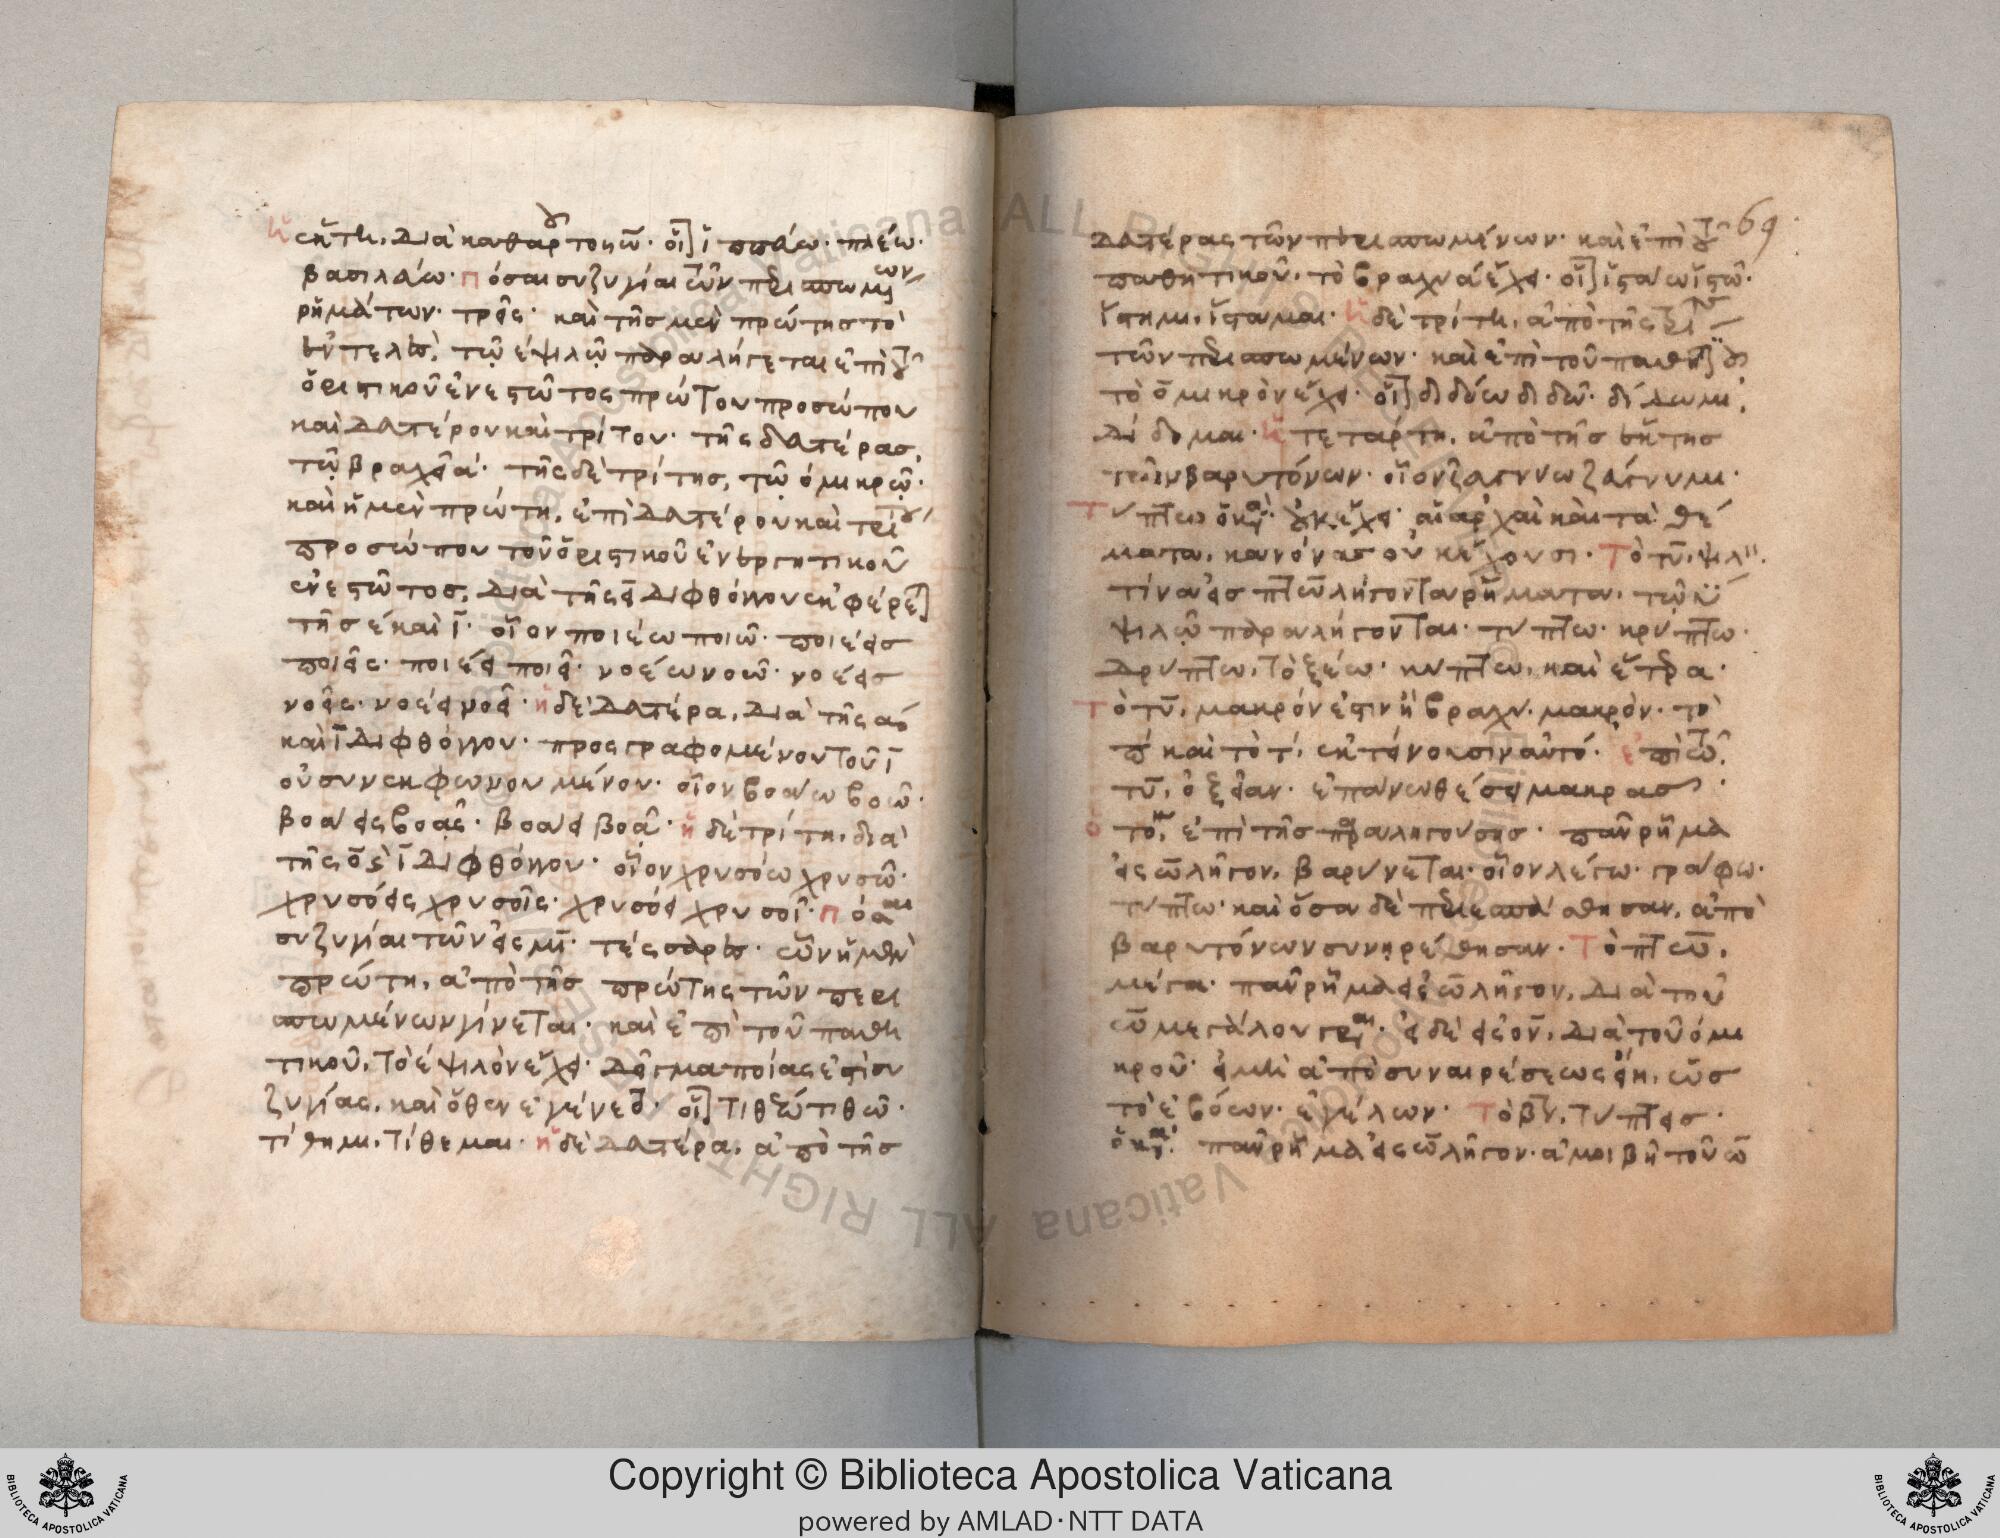 ἕκτη, διὰ καθαροῦ τοῦ ω· οἷον ἱππεύω· πλέω·
βασιλεύω· πόσαι συζυγίαι τῶν περισπωμένων
ῥημάτων· τρεῖς· καὶ τῆς μὲν πρώτης τὸ
ἐντελὲς, τῷ ε ψιλῷ παραλήγεται ἐπὶ τοῦ
ὁριστικοῦ ἐνεστῶτος πρώτου προσώπου
καὶ δευτέρου καὶ τρίτου· τῆς δευτέρας,
τῷ βραχεῖ α· τῆς δὲ τρίτης, τῷ ο μικρῷ·
καὶ ἡ μὲν πρώτη, ἐπὶ δευτέρου καὶ τρίτου
προσώπου τοῦ ὁριστικοῦ ἐνεργητικοῦ
ἐνεστῶτος, διὰ τῆς ει διφθόγγου ἐκφέρεται
τῆς ε καὶ ι· οἷον ποιέω ποιῶ· ποιέεις
ποιεῖς· ποιέει ποιεῖ· νοέω νοῶ· νοέεις
νοεῖς· νοέει νοεῖ· ἡ δὲ δευτέρα, διὰ τῆς α
καὶ ι διφθόγγου· προσγραφομένου τοῦ ι
οὐ συνεκφωνουμένου· οἷον βοάω βοῶ·
βοάεις βοᾷς· βοάει βοᾷ· ἡ δὲ τρίτη, διὰ
τῆς ο καὶ ι διφθόγγου· οἷον χρυσόω χρυσῶ·
χρυσόεις χρυσοῖς· χρυσόει χρυσοῖ· πόσαι
συζυγίαι τῶν εἰς μι· τέσσαρες· ὧν ἡ μὲν
πρώτη, ἀπὸ τῆς πρώτης τῶν περι
σπωμένων γίνεται· καὶ ἐπὶ τοῦ παθη
τικοῦ, τὸ ε ψιλὸν ἔχει· δεῖγμα ποίας ἐστὶ συ
ζυγίας, καὶ ὅθεν ἐγένετο· οἷον τιθέω τιθῶ·
τίθημι, τίθεμαι· ἡ δὲ δευτέρα, ἀπὸ τῆς
69
δευτέρας τῶν περισπωμένων· καὶ ἐπὶ τοῦ
παθητικοῦ, τὸ βραχὺ α ἔχει· οἷον ἱστάω ἱστῶ·
ἵστημι, ἵσταμαι· ἡ δὲ τρίτη, ἀπὸ τῆς τρίτης
τῶν περισπωμένων· καὶ ἐπὶ τοῦ παθητικοῦ
τὸ ο μικρὸν ἔχει· οἷον διδόω διδῶ· δίδωμι,
δίδομαι· ἡ τετάρτη, ἀπὸ τῆς ἕκτης
τῶν βαρυτόνων· οἷον ζευγνύω ζεύγνυμι·
Τύπτω οὐκ ἔχει· αἱ ἀρχαὶ καὶ τὰ θέ
ματα, κανόνας οὐκ ἔχουσι· Τὸ τυ, ψιλόν·
τίνα εἰς πτω λήγοντα ῥήματα, τῷ υ
ψιλῷ παραλήγονται· τύπτω· κρύπτω·
δρύπτω, τὸ ξέω· κύπτω, καὶ ἕτερα·
Τὸ τυ, μακρόν ἐστιν ἢ βραχύ· μακρόν· τὸ
π καὶ τὸ τ, ἐκτείνουσιν αὐτό· ἐπὶ τὸ
τυ, ὀξεῖαν· ἐπάνω θέσει μακρᾶς·
ἐπὶ τῆς παραληγούσης· πᾶν ῥῆμα
εἰς ω λῆγον, βαρύνεται· οἷον λέγω· γράφω·
τύπτω· καὶ ὅσα δὲ περιεσπάσθησαν, ἀπὸ
βαρυτόνων συνῃρέθησαν· Τὸ πτω,
μέγα· πᾶν ῥῆμα εἰς ω λῆγον, διὰ τοῦ
ω μεγάλου γράφεται· εἰ δὲ εἰς ον, διὰ τοῦ ο μι
κροῦ· εἰ μὴ ἀπὸ συναιρέσεως εἴη, ὡς
τὸ ἐβόων· ἐγέλων· Τὸ β, τύπτεις·
πᾶν ῥῆμα εἰς ω λῆγον· ἀμοιβῇ τοῦ ω
Copyright © Biblioteca Apostolica Vaticana
powered by AMLAD·NTT DATA
BIBLIOTECA APOSTOLICA VATICANA
BIBLIOTECA APOSTOLICA VATICANA